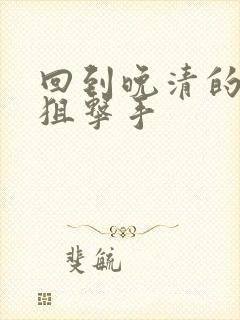 回到晚清的
狙撃手
斐毓